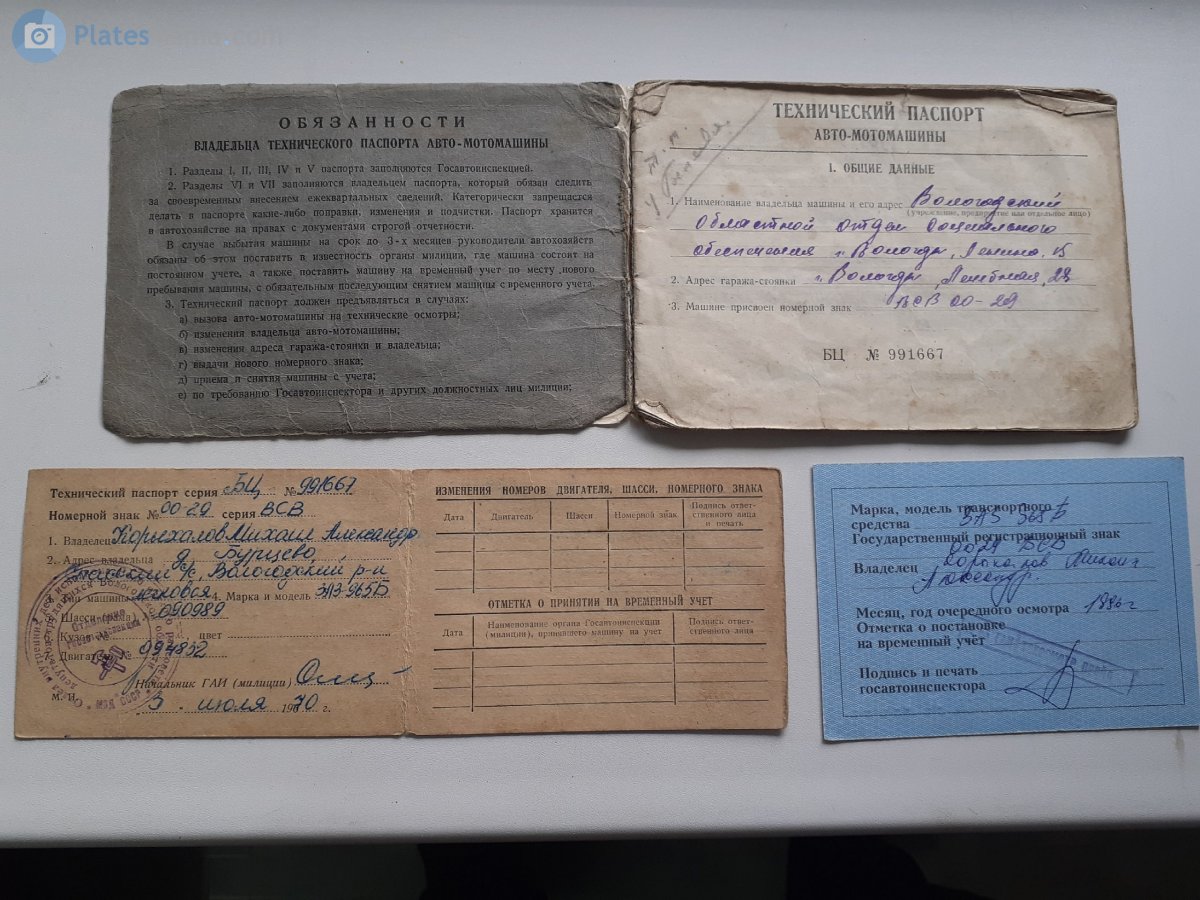 Plates
ОБЯЗАННОСТИ
ВЛАДЕЛЬЦА ТЕХНИЧЕСКОГО ПАСПОРТА АВТО-МОТОМАШИНЫ
1. Разделы I, II, III, IV и V паспорта заполняются Госавтоинспекцией.
2. Разделы VI и VII заполняются владельцем паспорта, который обязан следить
за своевременным внесением ежеквартальных сведений. Категорически запрещается
делать в паспорте какие-либо поправки, изменения и подчистки. Паспорт хранится
в автохозяйстве на правах с документами строгой отчетности.
В случае выбытия машины на срок до 3-х месяцев руководители автохозяйств
обязаны об этом поставить в известность органы милиции, где машина состоит на
постоянном учете, а также поставить машину на временный учет по месту нового
пребывания машины, с обязательным последующим снятием машины с временного учета.
3. Технический паспорт должен предъявляться в случаях:
а) вызова авто-мотомашины на технические осмотры;
б) изменения владельца авто-мотомашины;
в) изменения адреса гаража-стоянки и владельца;
г) выдачи нового номерного знака;
д) приема и снятия машины с учета;
е) по требованию Госавтоинспектора и других должностных лиц милиции;
ТЕХНИЧЕСКИЙ ПАСПОРТ
АВТО-МОТОМАШИНЫ
I. ОБЩИЕ ДАННЫЕ
1. Наименование владельца машины и его адрес Вологодский
(учреждение, предприятие или отдельное лицо)
Областной отдел социального
обеспечения г. Вологда, Ленина, 15
2. Адрес гаража-стоянки г. Вологда,
3. Машине присвоен номерной знак ВСВ 00-29
БЦ № 991667
Технический паспорт серия БЦ № 991667
Номерной знак № 00-29 серия ВСВ
1. Владелец Корыхалов Михаил Александр
2. Адрес владельца д. Бурцево
с/с, Вологодский р-н
3. Тип машины легковая 4. Марка и модель ЗАЗ-965Б
Шасси (рама) № 090989
Кузов цвет
Двигатель № 094852
Начальник ГАИ (милиции)
М. П. 3 июля 1970 г.
ИЗМЕНЕНИЯ НОМЕРОВ ДВИГАТЕЛЯ, ШАССИ, НОМЕРНОГО ЗНАКА
Дата Двигатель Шасси Номерной знак Подпись ответ-
ственного лица
и печать
ОТМЕТКА О ПРИНЯТИИ НА ВРЕМЕННЫЙ УЧЕТ
Дата Наименование органа Госавтоинспекции
(милиции), принявшего машину на учет
Подпись ответ-
ственного лица
Марка, модель транспортного
средства ЗАЗ 965Б
Государственный регистрационный знак
0029 ВСВ
Владелец Корыхалов Михаил
Александр.
Месяц, год очередного осмотра 1996 г
Отметка о постановке
на временный учёт
Подпись и печать
госавтоинспектора